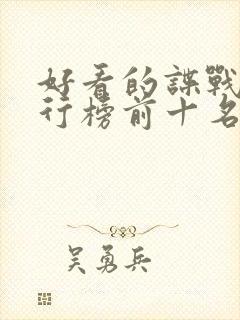 好看的諜戰
行榜前十名
吳勇兵